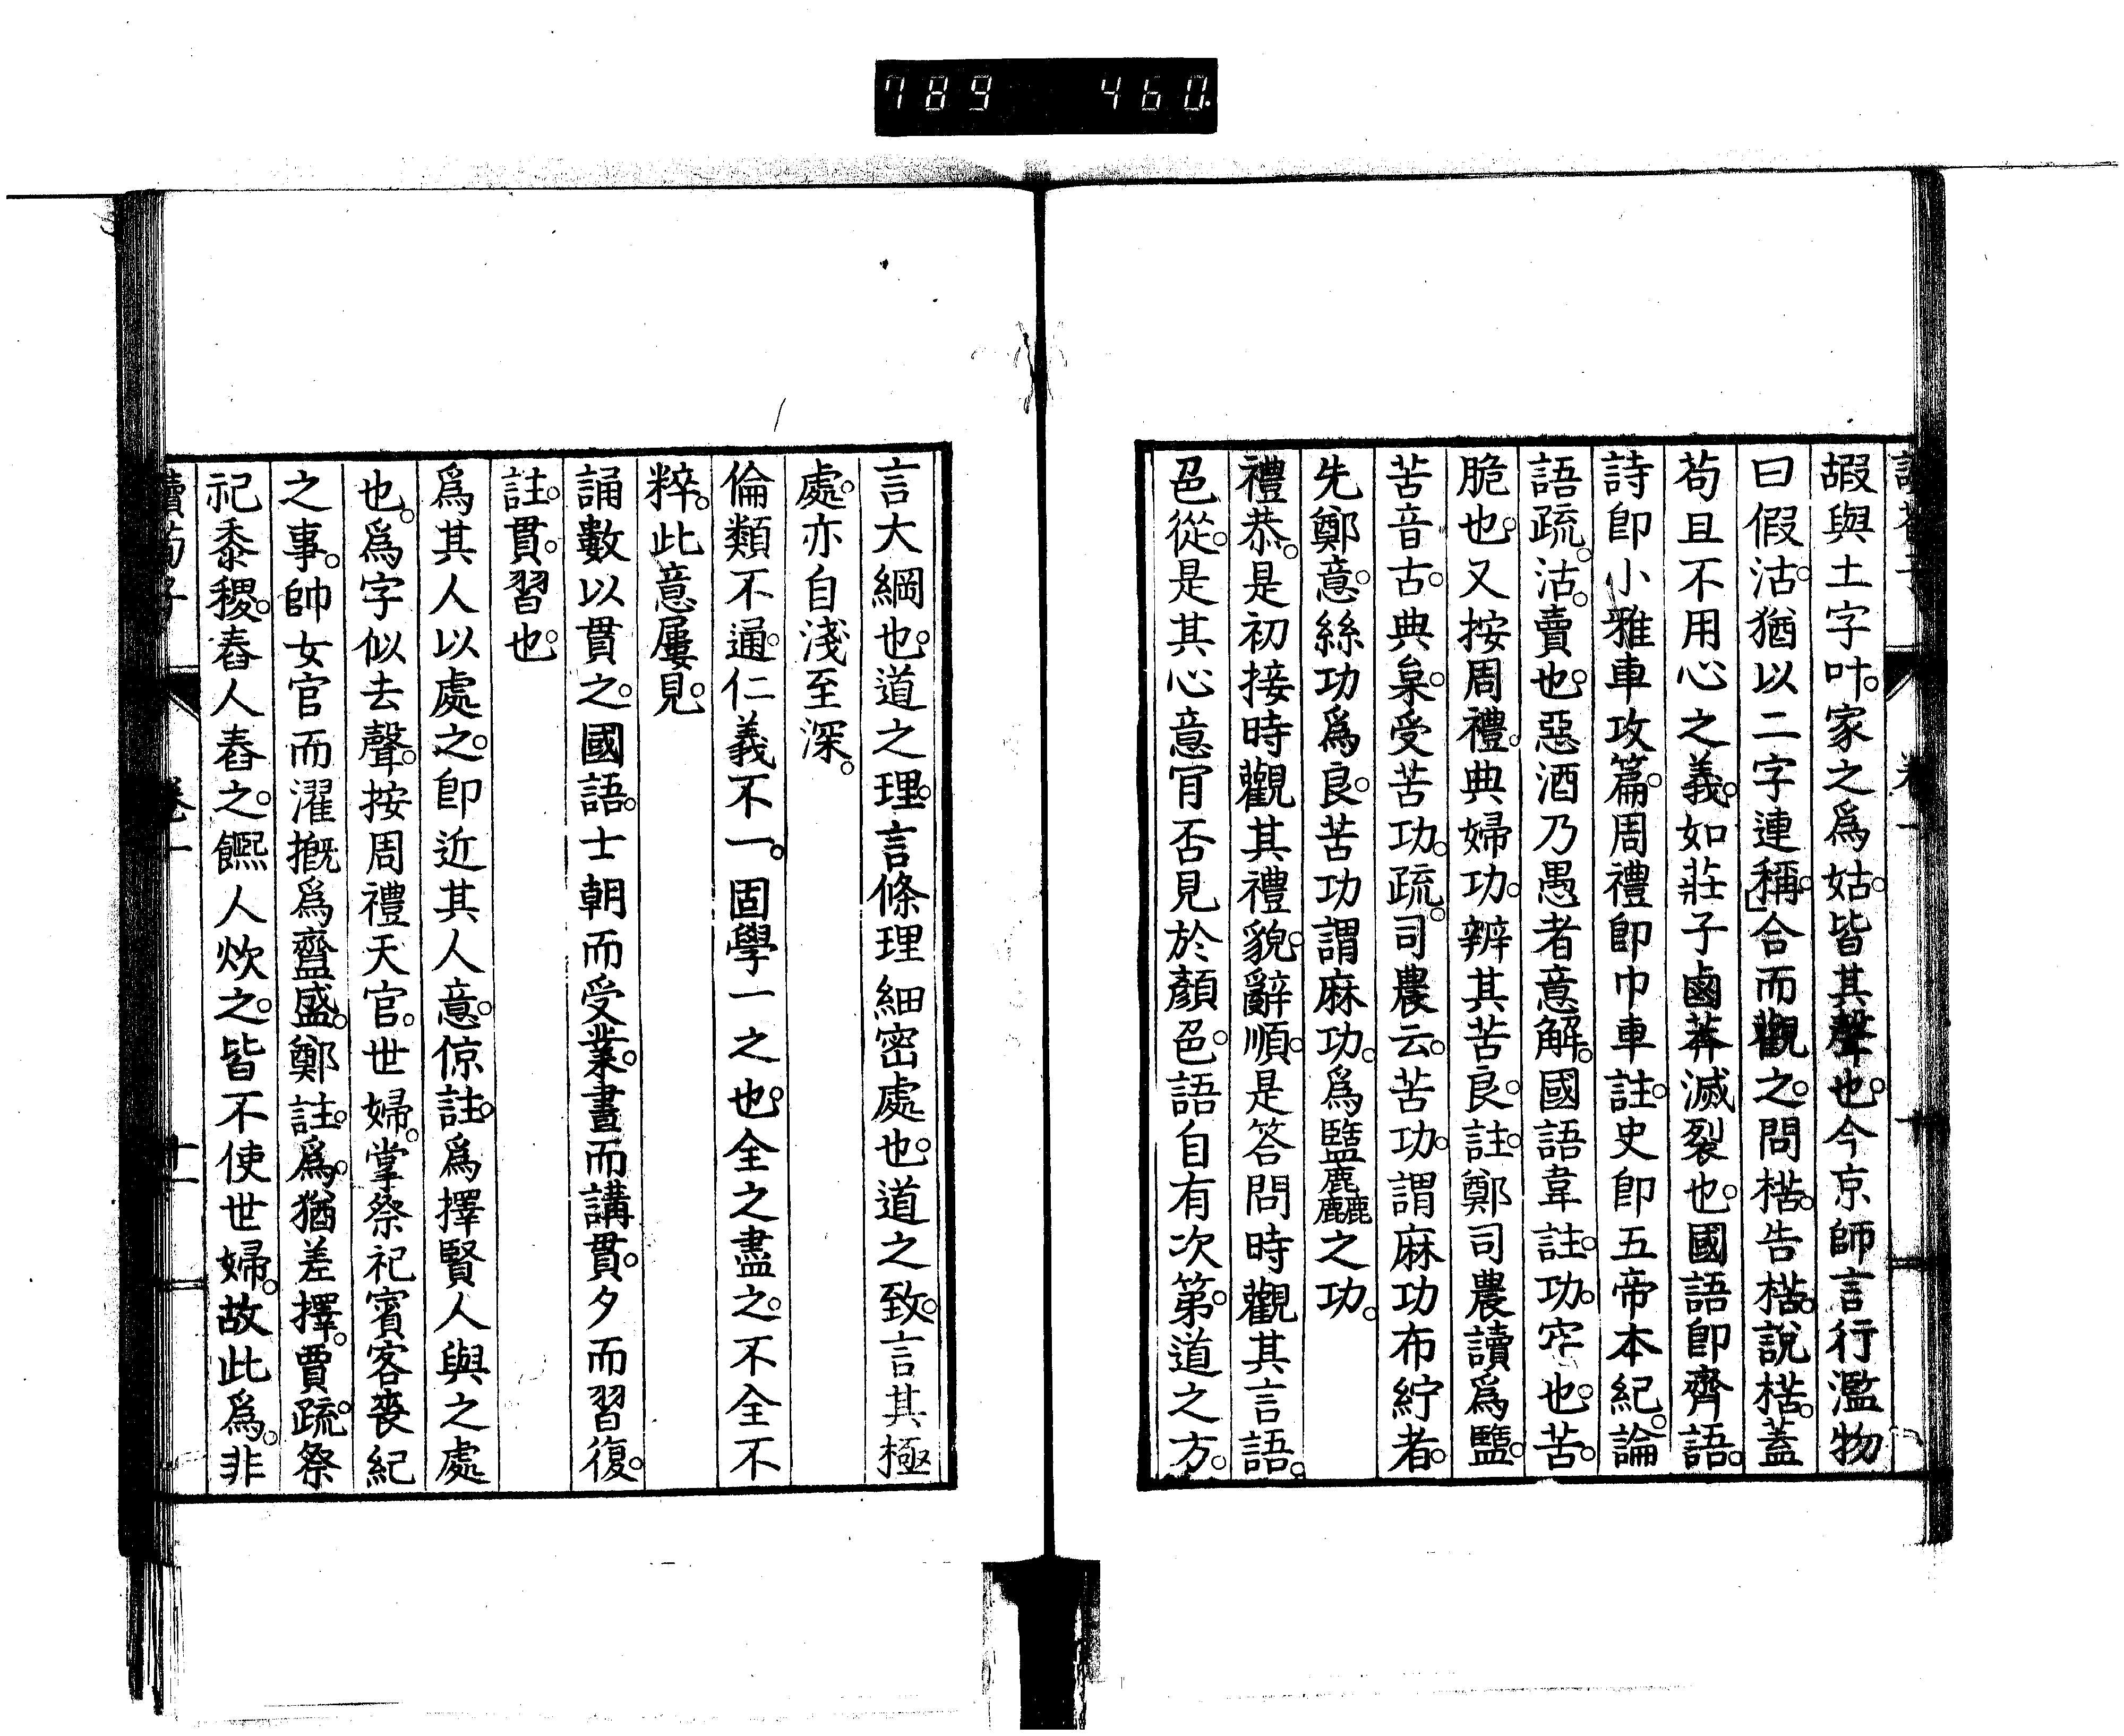 789 460
嘏與土字叶。家之爲姑。皆其聲也。今京師言行濫物
曰假沽。沽猶以二字連稱。合而觀之。問楛。告楛。說楛。蓋
苟且不用心之義。如莊子鹵莽滅裂也。國語卽齊語。
詩卽小雅車攻篇。周禮卽巾車註。史卽五帝本紀。論
語疏。沽。賣也。惡酒乃愚者意解。國語韋註。功。牢也。苦。
脆也。又按周禮。典婦功。辨其苦良。註。鄭司農讀爲盬。
苦音古。典枲。受苦功。疏。司農云。苦功。謂麻功布紵者。
先鄭意。絲功爲良。苦功謂麻功。爲盬麤之功。
禮恭。是初接時觀其禮貌。辭順。是答問時觀其言語。
色從。是其心意肎否見於顏色。語自有次第。道之方。
言大綱也。道之理。言條理細密處也。道之致。言其極
處。亦自淺至深。
倫類不通。仁義不一。固學一之也。全之盡之。不全不
粹。此意屢見。
誦數以貫之。國語。士朝而受業。晝而講貫。夕而習復。
註。貫。習也。
爲其人以處之。卽近其人意。倞註。爲擇賢人與之處
也。爲字似去聲。按周禮天官。世婦。掌祭祀賓客喪紀
之事。帥女官而濯摡爲齍盛。鄭註。爲。猶差擇。賈疏。祭
祀黍稷。舂人舂之。饎人炊之。皆不使世婦。故此爲。非
讀荀子 卷一 十一